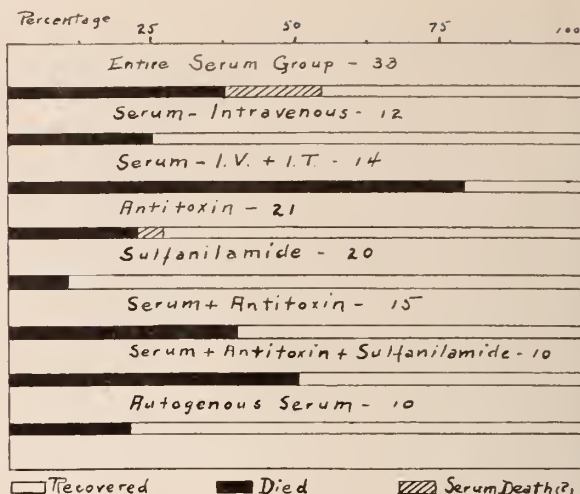 Percentage
25 50 75 100
Entire Serum Group - 33
Serum - Intravenous - 12
Serum - I.V. + I.T. - 14
Antitoxin - 21
Sulfanilamide - 20
Serum + Antitoxin - 15
Serum + Antitoxin + Sulfanilamide - 10
Autogenous Serum - 10
Recovered Died Serum Death(?)